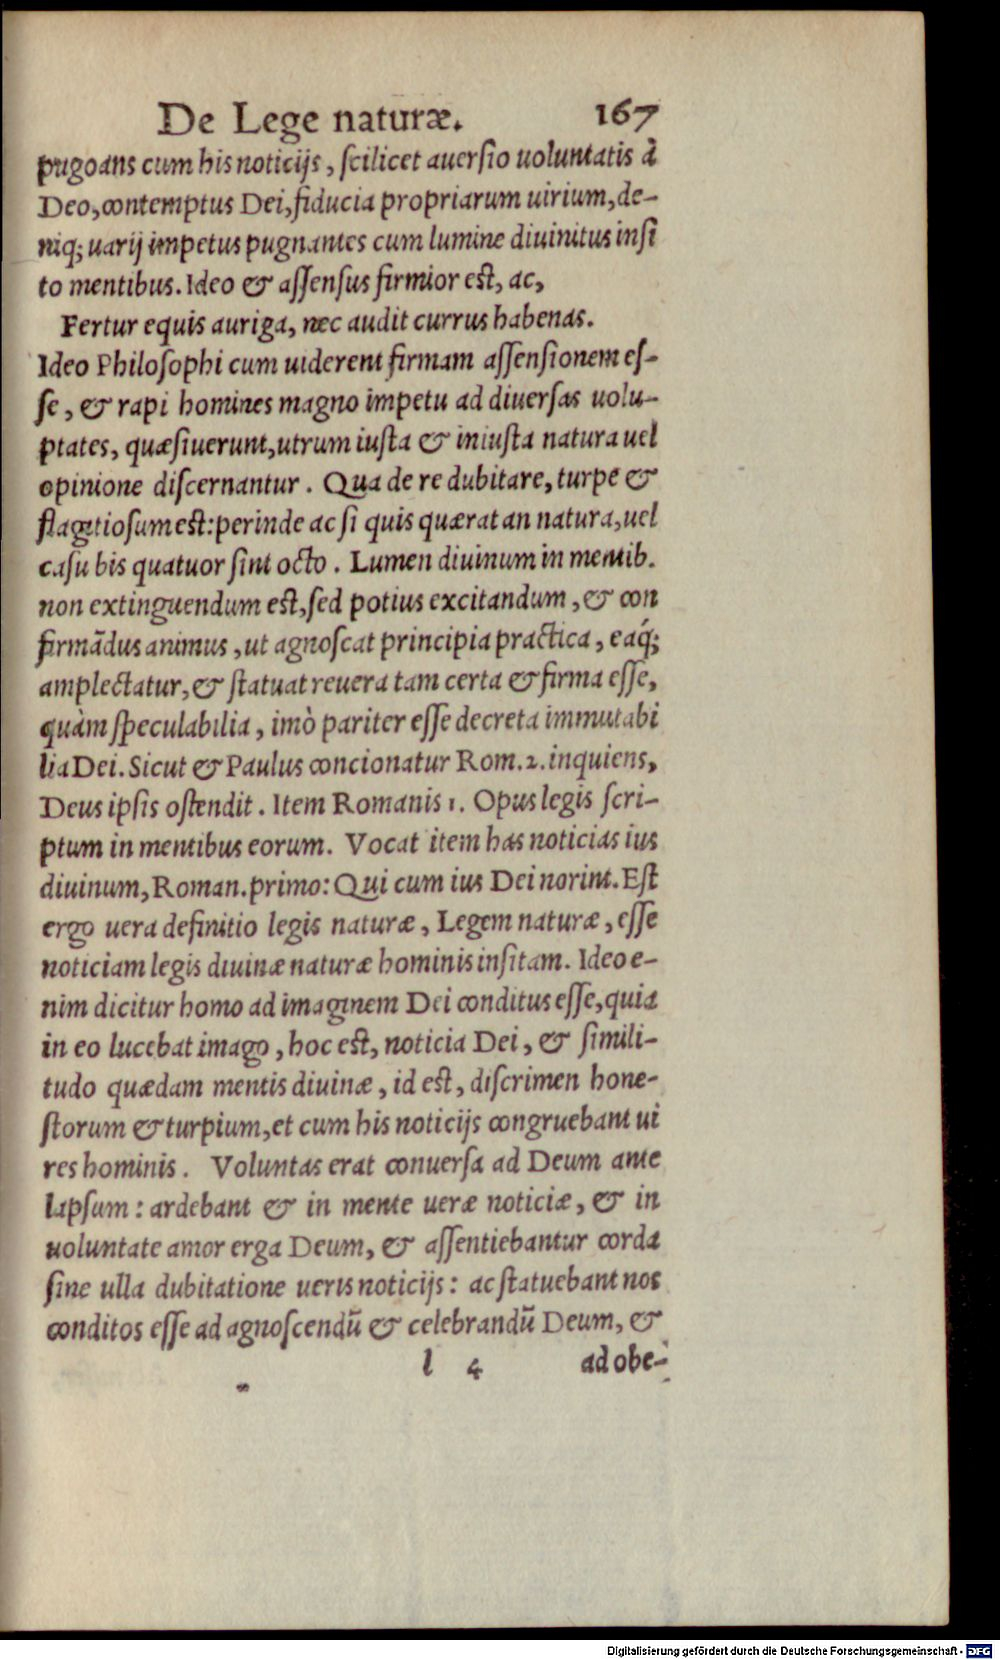 De Lege naturæ. 167
pugoans cum his noticijs, scilicet auersio uoluntatis à
Deo, contemptus Dei, fiducia propriarum uirium, de-
niq; uarij impetus pugnantes cum lumine diuinitus insi
to mentibus. Ideo & assensus firmior est, ac,
Fertur equis auriga, nec audit currus habenas.
Ideo Philosophi cum uiderent firmam assensionem es-
se, & rapi homines magno impetu ad diuersas uolu-
ptates, quæsiuerunt, utrum iusta & iniusta natura uel
opinione discernantur. Qua de re dubitare, turpe &
flagitiosum est: perinde ac si quis quærat an natura, uel
casu bis quatuor sint octo. Lumen diuinum in mentib.
non extinguendum est, sed potius excitandum, & con
firmãdus animus, ut agnoscat principia practica, eaq́;
amplectatur, & statuat reuera tam certa & firma esse,
quàm speculabilia, imò pariter esse decreta immutabi
lia Dei. Sicut & Paulus concionatur Rom. 2. inquiens,
Deus ipsis ostendit. Item Romanis 1. Opus legis scri-
ptum in mentibus eorum. Vocat item has noticias ius
diuinum, Roman. primo: Qui cum ius Dei norint. Est
ergo uera definitio legis naturæ, Legem naturæ, esse
noticiam legis diuinæ naturæ hominis insitam. Ideo e-
nim dicitur homo ad imaginem Dei conditus esse, quia
in eo lucebat imago, hoc est, noticia Dei, & simili-
tudo quædam mentis diuinæ, id est, discrimen hone-
storum & turpium, et cum his noticijs congruebant ui
res hominis. Voluntas erat conuersa ad Deum ante
lapsum: ardebant & in mente ueræ noticiæ, & in
uoluntate amor erga Deum, & assentiebantur corda
sine ulla dubitatione ueris noticijs: ac statuebant nos
conditos esse ad agnoscendũ & celebrandũ Deum, &
l 4 ad obe-
Digitalisierung gefördert durch die Deutsche Forschungsgemeinschaft - DFG